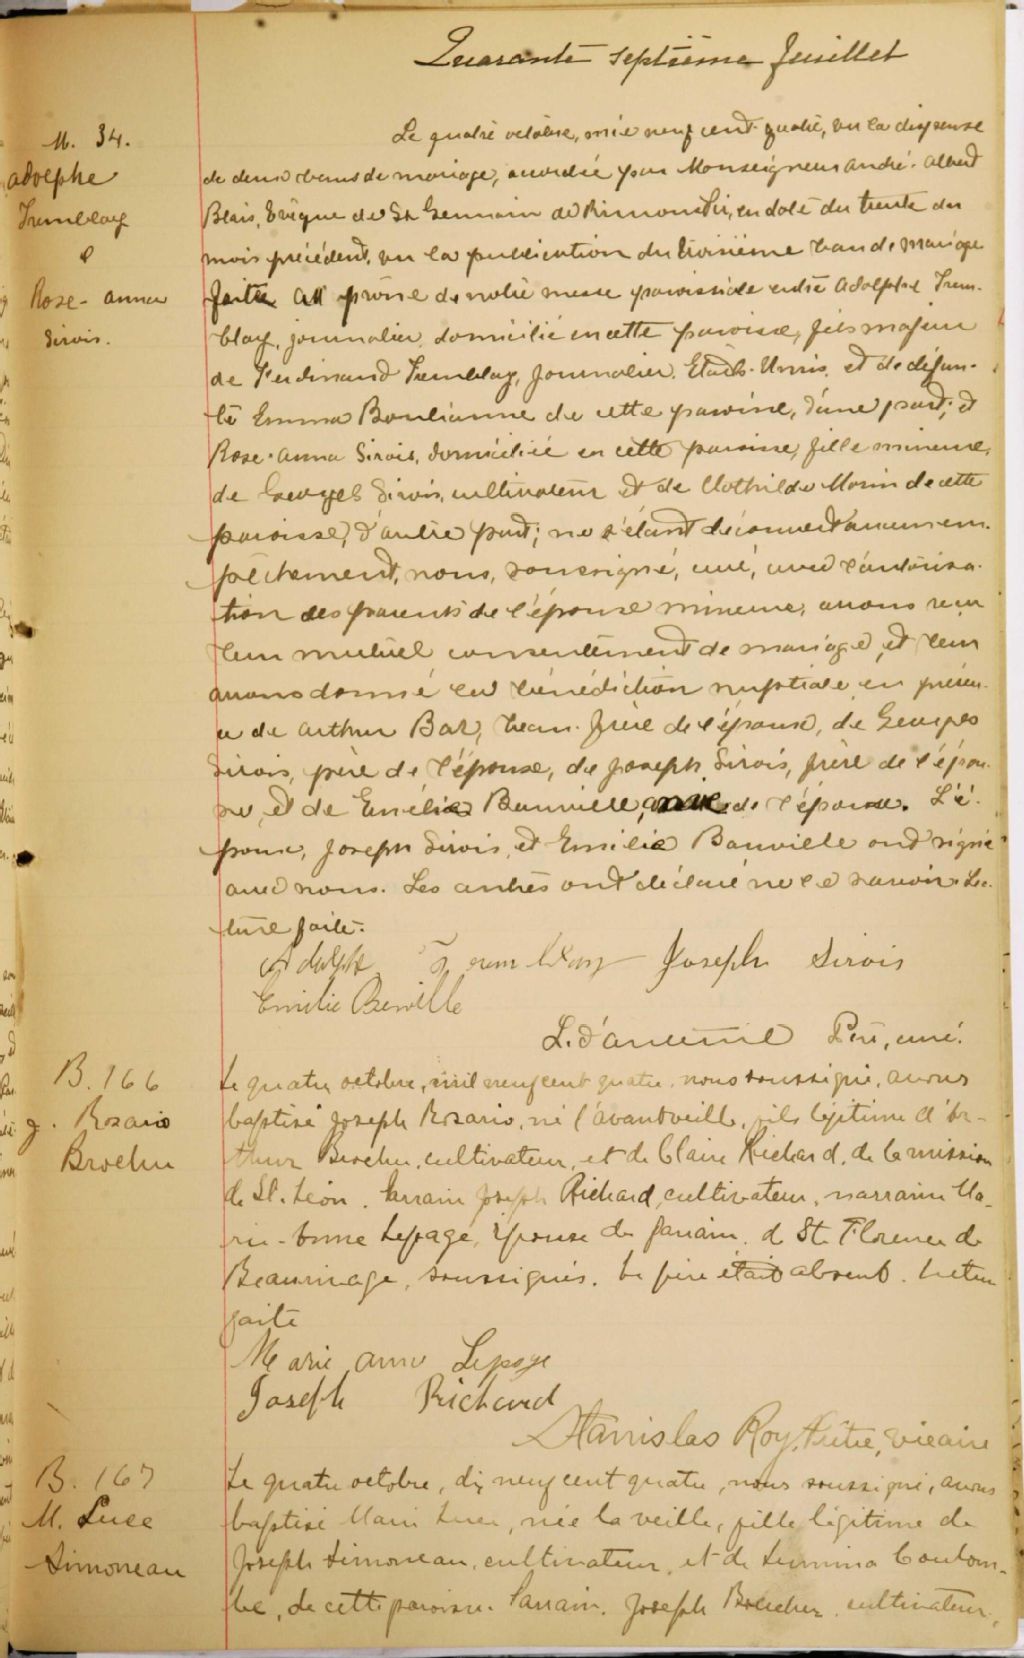 Quarante septième feuillet
M. 34.
Adolphe
Tremblay
&
Rose-Anna
Sirois.
Le quatre octobre, mil neuf cent quatre, vu la dispense
de deux bans de mariage, accordée par Monseigneur André-Albert
Blais, Evêque de St Germain de Rimouski, en date du trente du
mois précédent, vu la publication du troisième ban de mariage
faite au prône de notre messe paroissiale entre Adolphe Trem-
blay, journalier, domicilié en cette paroisse, fils majeur
de Ferdinand Tremblay, journalier, Etats-Unis, et de défun-
te Emma Boulianne de cette paroisse, d'une part; et
Rose-Anna Sirois, domiciliée en cette paroisse, fille mineure,
de Georges Sirois, cultivateur et de Clothilde Morin de cette
paroisse, d'autre part; ne s'étant découvert aucun em-
pêchement, nous, soussigné, curé, avec l'autorisa-
tion des parents de l'épouse mineure, avons reçu
leur mutuel consentement de mariage, et leur
avons donné la bénédiction nuptiale en présen-
ce de Arthur Bar, beau-frère de l'époux, de Georges
Sirois, père de l'épouse, de Joseph Sirois, frère de l'épou-
se, et de Emélie Banville, de l'épouse. L'é-
poux, Joseph Sirois, et Emilie Banville ont signé
avec nous. Les autres ont déclaré ne le savoir. Lec-
ture faite.
Adolphe Tremblay Joseph Sirois
Emilie Benville
L. d'Anjou Ptre, curé.
B. 166
J. Rosario
Brochu
Le quatre octobre, mil neuf cent quatre, nous soussigné, avons
baptisé Joseph Rosario, né l'avant veille, fils légitime d'Ar-
thur Brochu, cultivateur, et de Claire Richard, de la mission
de St. Léon. Parrain Joseph Richard, cultivateur, marraine Ma-
rie-Anne Lepage, épouse du parrain, de Ste Florence de
Beaurivage, soussignés. Le père était absent. Lecture
faite
Marie anne Lepage
Joseph Richard
Stanislas Roy, Prêtre, vicaire
B. 167
M. Luce
Simoneau
Le quatre octobre, dix neuf cent quatre, nous soussigné, avons
baptisé Marie Luce, née la veille, fille légitime de
Joseph Simoneau, cultivateur, et de Lumina Coulom-
be, de cette paroisse. Parrain, Joseph Boucher, cultivateur,